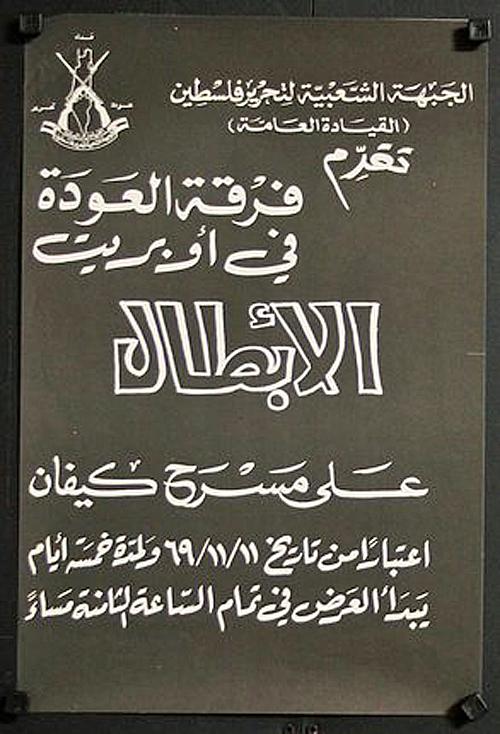 فداء
عودة
تحرير
الجبهة الشعبية لتحرير فلسطين
(القيادة العامة)
تقدّم
فرقة العودة
في أوبريت
الأبطال
على مسرح كيفان
اعتبارًا من تاريخ ٦٩/١١/١١ ولمدة خمسة أيام
يبدأ العرض في تمام الساعة الثامنة مساءً